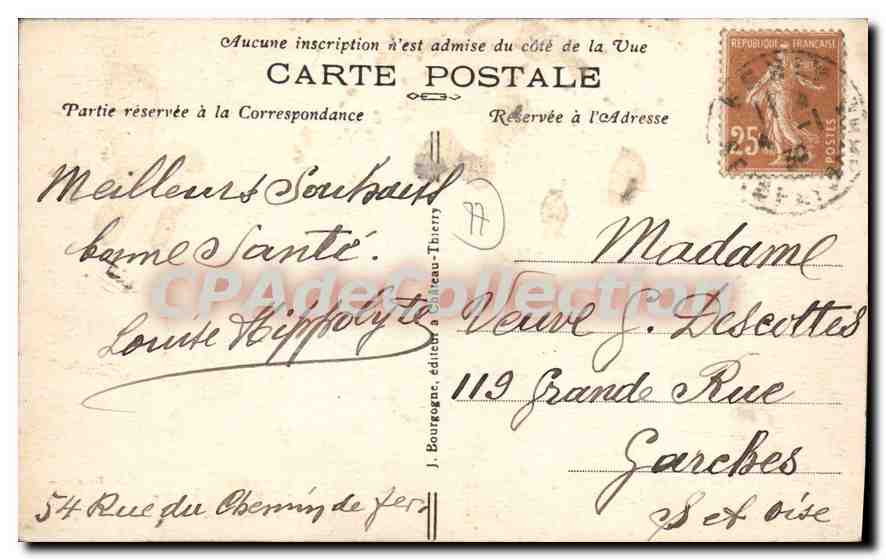 Aucune inscription n'est admise du côté de la Vue
CARTE POSTALE
Partie réservée à la Correspondance
Réservée à l'Adresse
REPUBLIQUE FRANÇAISE
25
POSTES
Meilleurs Souhaits
bonne Santé.
Louise Hippolyte
54 Rue du Chemin de fer
J. Bourgogne, éditeur à Château-Thierry
77
Madame
Veuve G. Descottes
119 Grande Rue
Garches
S et Oise
CPAdeCollection